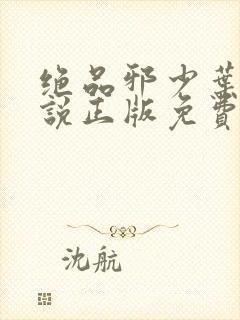 绝品邪少葉
説正版免費
沈航